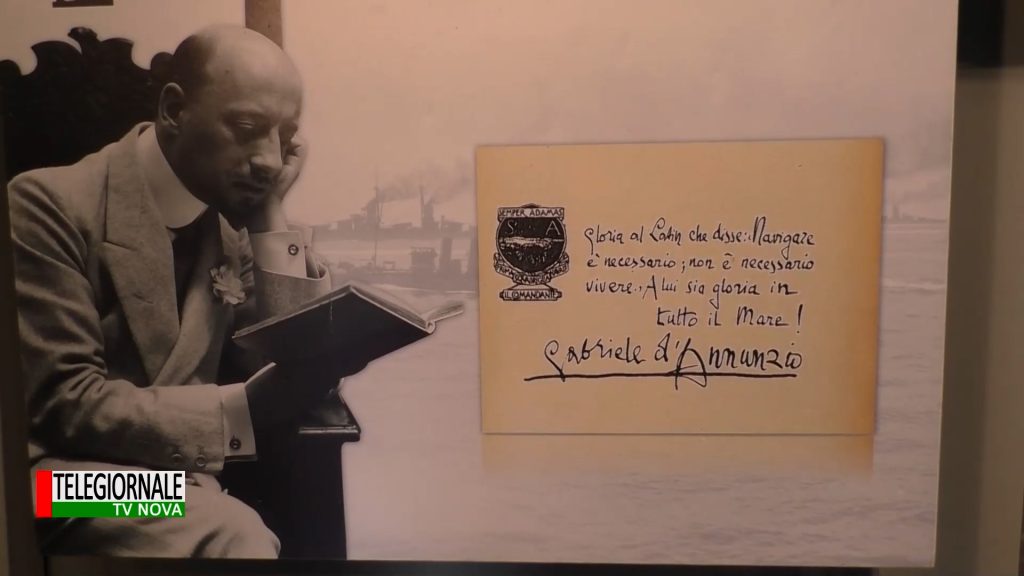 SEMPER ADAMAS
S A
IL COMANDANTE
Gloria al Latin che disse: "Navigare
è necessario; non è necessario
vivere". A lui sia gloria in
tutto il Mare!
Gabriele d'Annunzio
TELEGIORNALE
TV NOVA